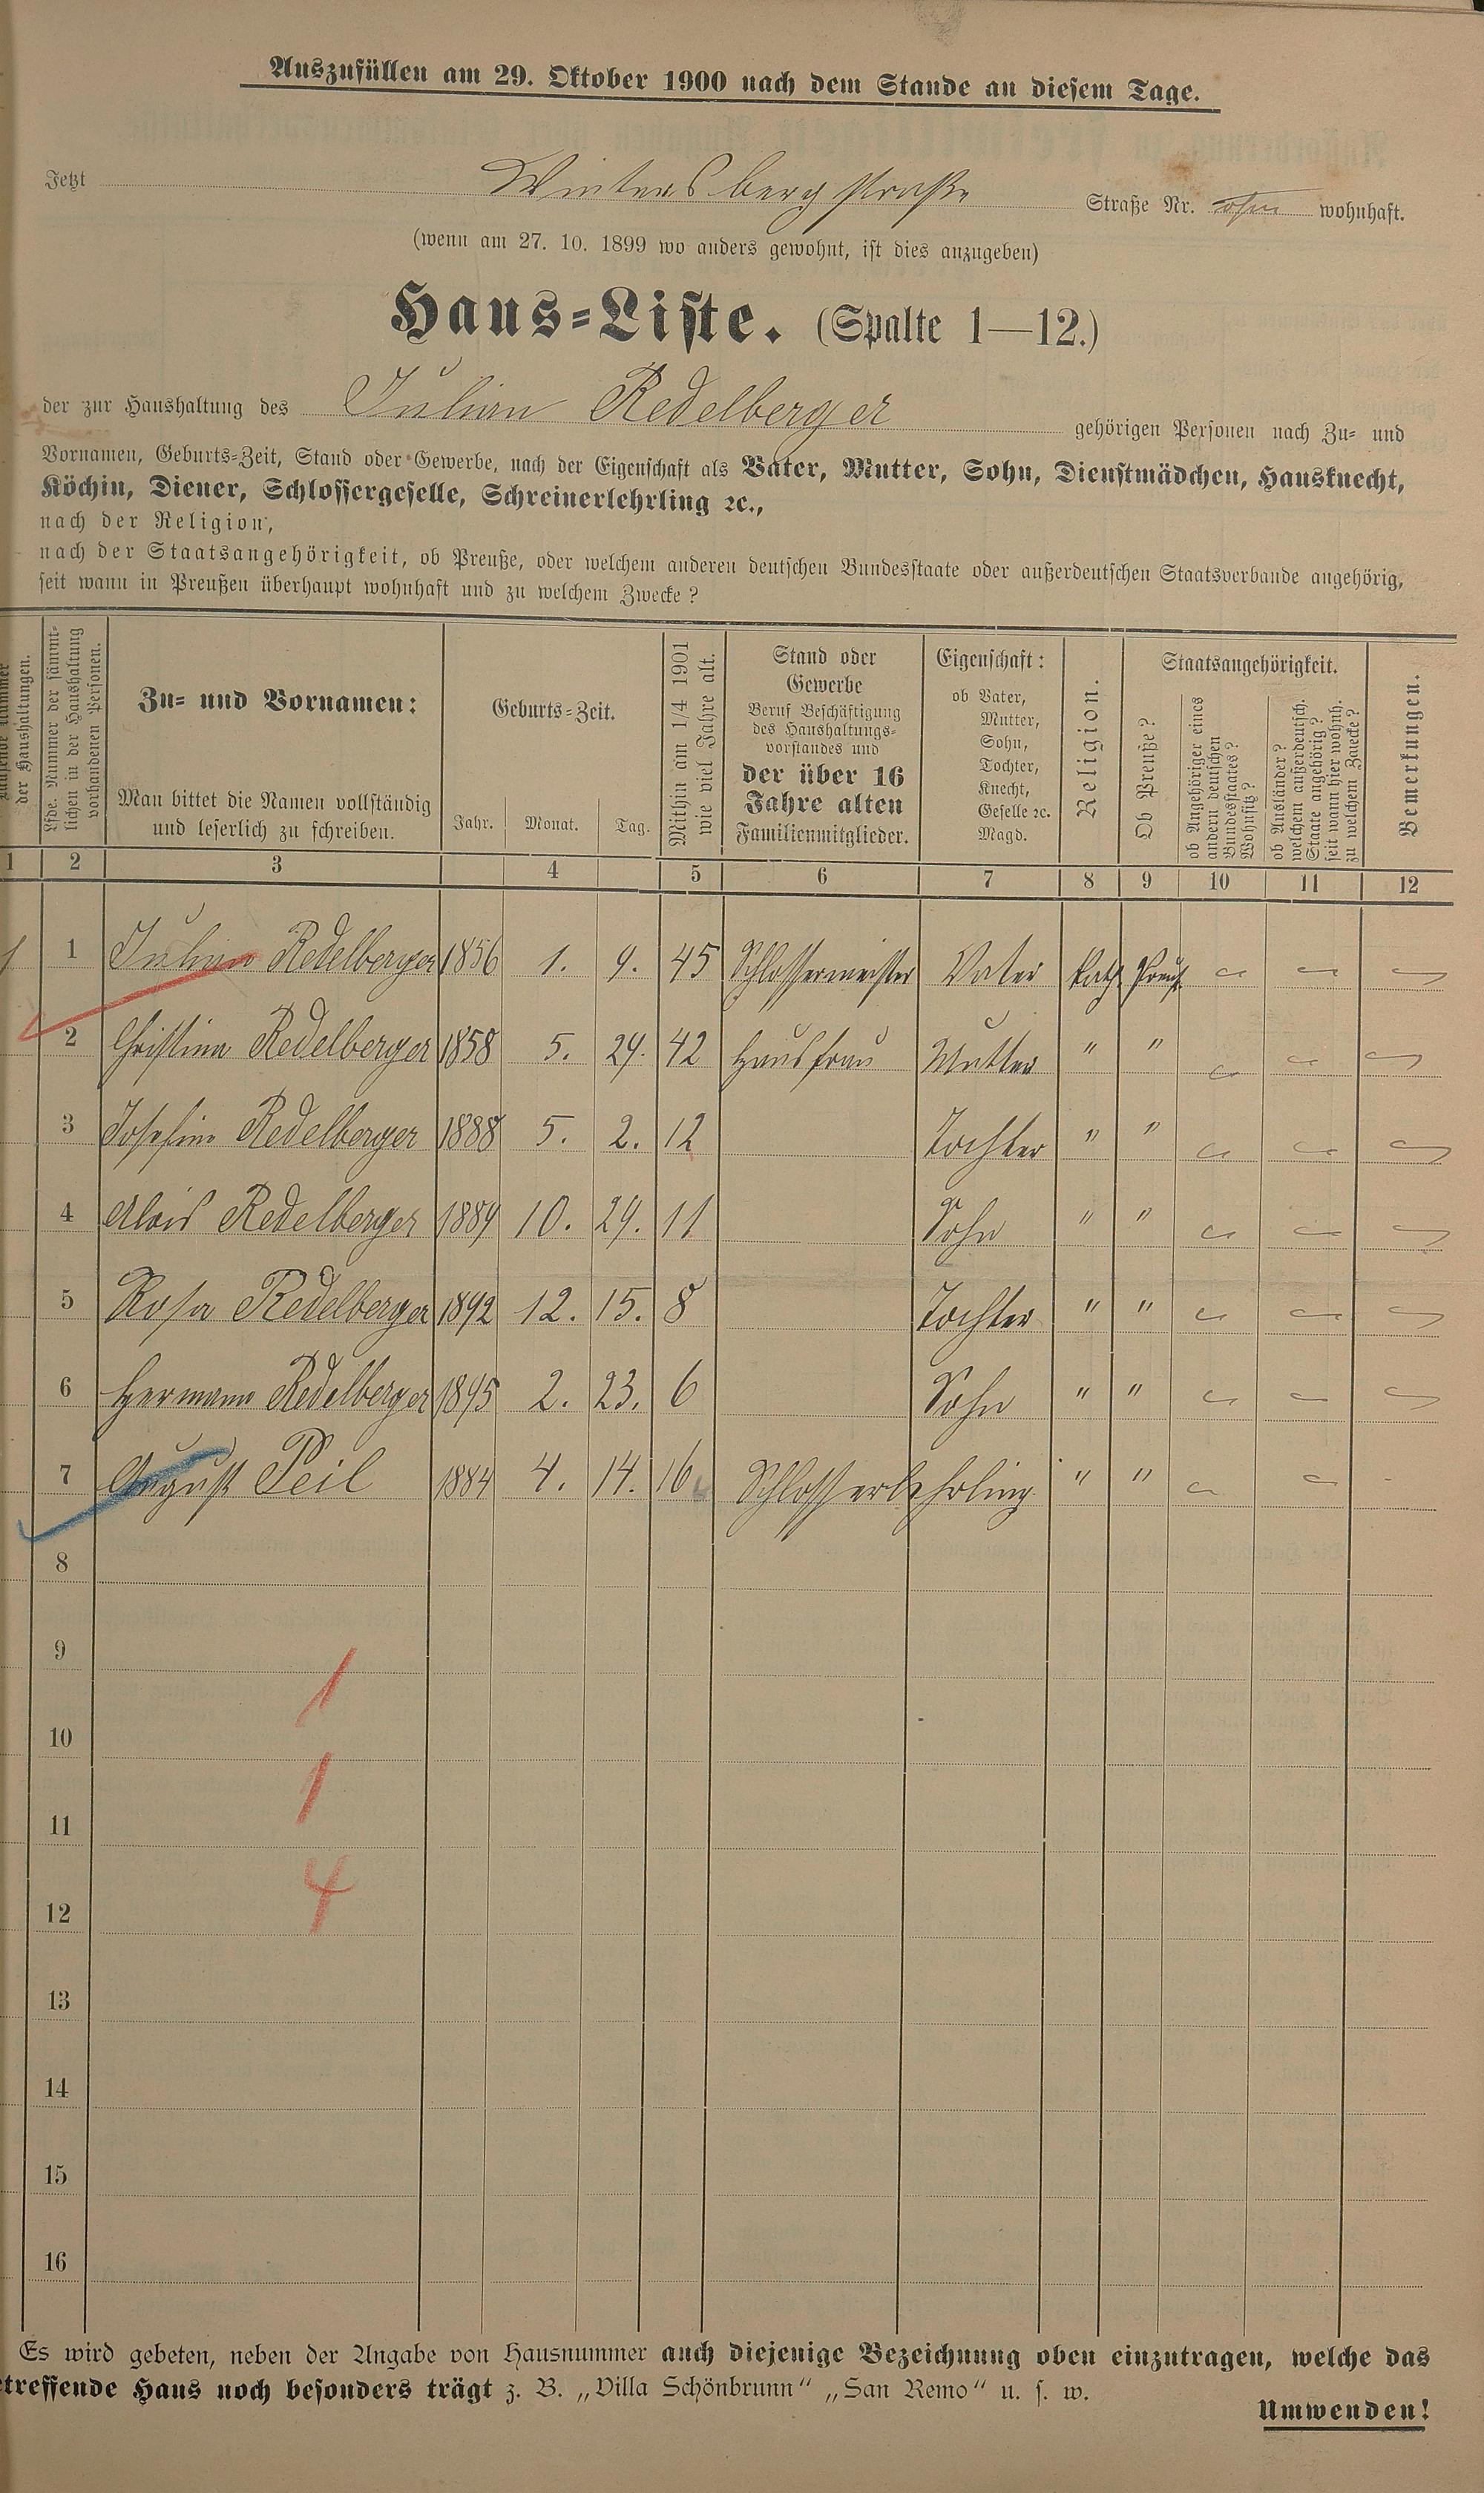 Auszufüllen am 29. Oktober 1900 nach dem Stande an diesem Tage.
Jetzt Wintersbergstraße Straße Nr. ohne wohnhaft.
(wenn am 27. 10. 1899 wo anders gewohnt, ist dies anzugeben)
Haus-Liste. (Spalte 1—12.)
der zur Haushaltung des Julian Redelberger gehörigen Personen nach Zu- und
Vornamen, Geburts-Zeit, Stand oder Gewerbe, nach der Eigenschaft als Vater, Mutter, Sohn, Dienstmädchen, Hausknecht,
Köchin, Diener, Schlossergeselle, Schreinerlehrling ꝛc.,
nach der Religion,
nach der Staatsangehörigkeit, ob Preuße, oder welchem anderen deutschen Bundesstaate oder außerdeutschen Staatsverbande angehörig,
seit wann in Preußen überhaupt wohnhaft und zu welchem Zwecke?
der Haushaltungen.
Lfde. Nummer der sämmt-
lichen in der Haushaltung
vorhandenen Personen.
Zu- und Vornamen:
Man bittet die Namen vollständig
und leserlich zu schreiben.
Geburts-Zeit.
Jahr. Monat. Tag.
Mithin am 1/4 1901
wie viel Jahre alt.
Stand oder
Gewerbe
Beruf Beschäftigung
des Haushaltungs-
vorstandes und
der über 16
Jahre alten
Familienmitglieder.
Eigenschaft:
ob Vater,
Mutter,
Sohn,
Tochter,
Knecht,
Geselle ꝛc.
Magd.
Religion.
Staatsangehörigkeit.
Ob Preuße?
ob Angehöriger eines
andern deutschen
Bundesstaates?
Wohnsitz?
ob Ausländer?
welchem außerdeutsch.
Staate angehörig?
seit wann hier wohnh.
zu welchem Zwecke?
Bemerkungen.
1 2 3 4 5 6 7 8 9 10 11 12
1 1 Julian Redelberger 1856 1. 9. 45 Schlossermeister Vater Kath Preuß
2 Christina Redelberger 1858 5. 29. 42 Hausfrau Mutter " "
3 Josefine Redelberger 1888 5. 2. 12 Tochter " "
4 Alois Redelberger 1889 10. 29. 11 Sohn " "
5 Rosa Redelberger 1892 12. 15. 8 Tochter " "
6 Hermann Redelberger 1895 2. 23. 6 Sohn " "
7 August Peil 1884 4. 14. 16 Schlosserlehrling " "
8
9
1
10
1
11
4
12
13
14
15
16
Es wird gebeten, neben der Angabe von Hausnummer auch diejenige Bezeichnung oben einzutragen, welche das
treffende Haus noch besonders trägt z. B. „Villa Schönbrunn“ „San Remo“ u. s. w.
Umwenden!